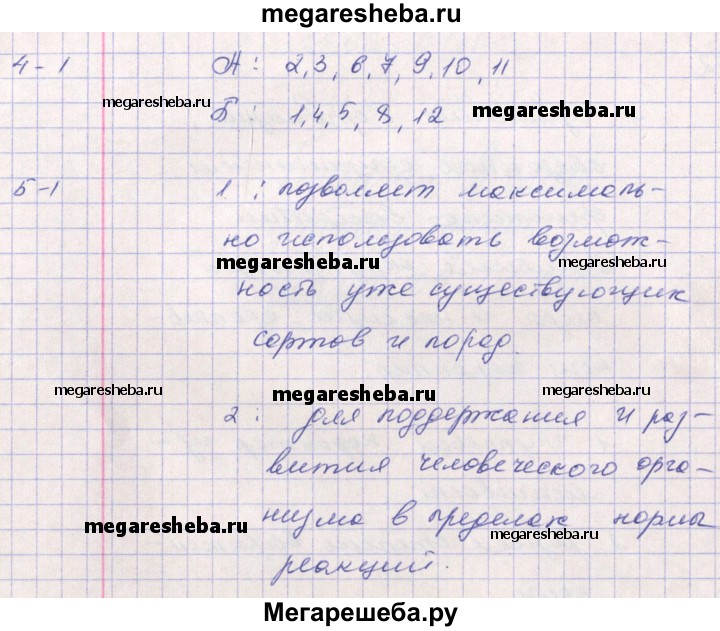 megaresheba.ru
4-1 А: 2,3,6,7,9,10,11
megaresheba.ru
Б: 1,4,5,8,12 megaresheba.ru
5-1 1: позволяет максималь-
но использовать возмож-
megaresheba.ru megaresheba.ru
ность уже существующих
сортов и пород.
megaresheba.ru megaresheba.ru megaresheba.ru
2: для поддержания и раз-
вития человеческого орга-
низма в пределах нормы
megaresheba.ru megaresheba.ru
реакций.
Мегарешеба.ру